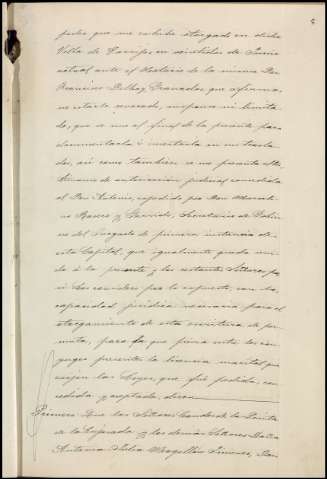 5
poder que me exhibe otorgado en dicha
Villa de Campo en veintidos de Junio
actual ante el Notario de la misma Don
que afirma
no estarle revocado, suspenso ni limita-
do, que se une al final de la presente para
documentarla é insertarla en sus trasla-
dos, así como tambien se me presenta
testimonio de autorizacion judicial concedida
al Don Antonio, expedido por Don
no y Garrido, Secretario de
no del Juzgado de primera instancia de
esta Capital, que igualmente queda uni-
do á la presente y los restantes Señores por
sí. Los considero por lo expuesto, con la
capacidad jurídica necesaria para el
otorgamiento de esta escritura de per-
muta, para la que previa entre los con-
yuges presentes la licencia marital que
exijen las Leyes, que fué pedida, con-
cedida y aceptada, dicen
Primero Que los Señores Condes de la
de la y los demás Señores Doña
Antonia Julia Magallón Jimenez, Don